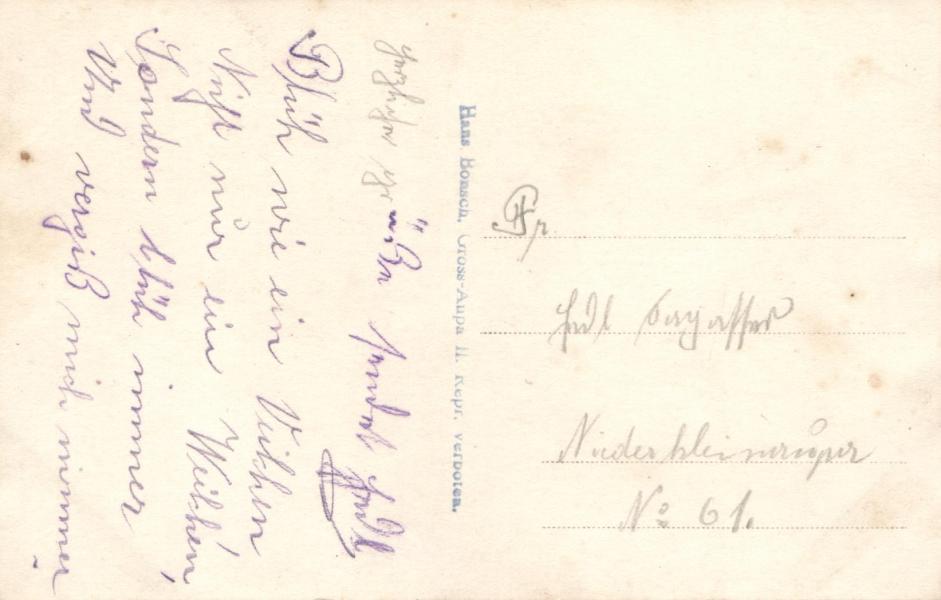 Herzliche Grüße sendet Hedl
Blüh wie ein Veilchen
Nicht nur ein Weilchen,
Sondern blüh immer
Und vergiß mich nimmer
Hans Bonsch, Gross-Aupa II. Repr. verboten.
Fr
Hedl
Niederkleinaupa
No 61.